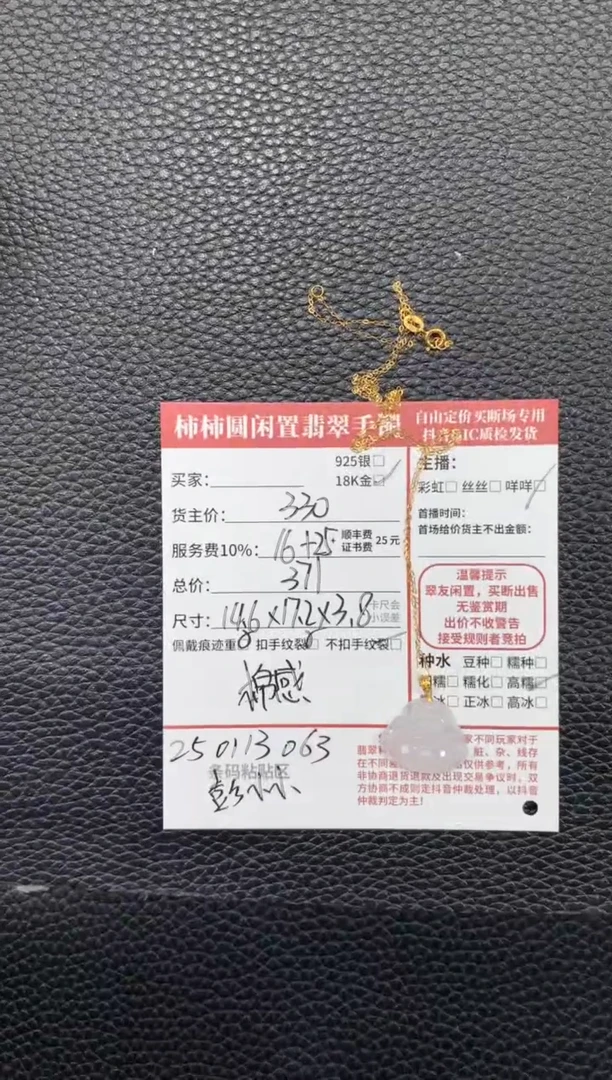 柿柿圆闲置翡翠手
自由定价买断场专用
抖音 IC质检发货
925银
买家：
18K金
货主价： 330
服务费10%： 16+25 顺丰费 证书费 25元
总价： 371
尺寸： 14.6×17.2×3.8
佩戴痕迹重 扣手纹裂 不扣手纹裂
棉感
主播：
彩虹 丝丝 咩咩
首播时间：
首场给价货主不出金额：
温馨提示
翠友闲置，买断出售
无鉴赏期
出价不收警告
接受规则者竞拍
种水 豆种 糯种
糯 糯化 高糯
冰 正冰 高冰
250113063
条码粘贴区
家不同玩家对于
翡翠 脏、杂、线存
在不同 仅供参考，所有
非协商退货退款及出现交易争议时，双
方协商不成则走抖音仲裁处理，以抖音
仲裁判定为主！